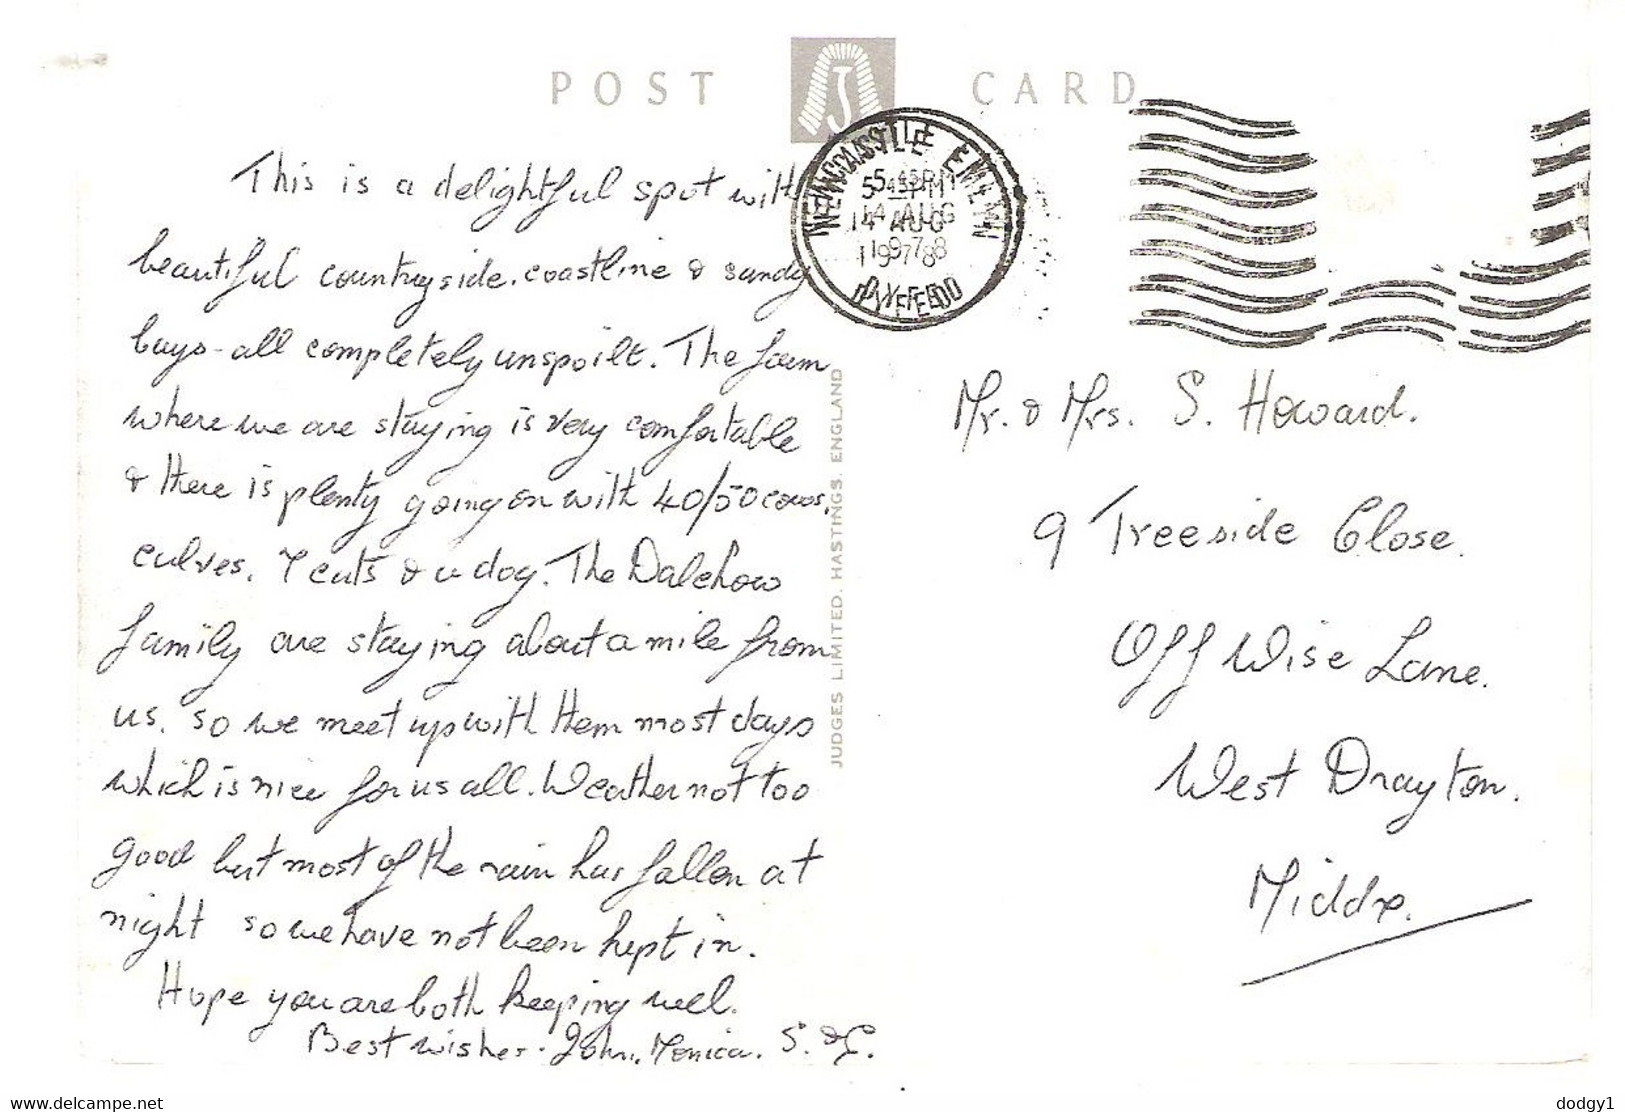 POST CARD
NEWCASTLE EMLYN
5 45 PM
14 AUG
1978
DYFED
This is a delightful spot with
beautiful countryside, coastline & sandy
bays - all completely unspoilt. The farm
where we are staying is very comfortable
& there is plenty going on with 40/50 cows,
calves, 7 cats & a dog. The Dalchow
family are staying about a mile from
us, so we meet up with them most days
which is nice for us all. Weather not too
good but most of the rain has fallen at
night so we have not been kept in.
Hope you are both keeping well.
Best wishes - John, Monica, S. & G.
JUDGES LIMITED, HASTINGS, ENGLAND
Mr. & Mrs. S. Howard.
9 Treeside Close.
Off Wise Lane.
West Drayton.
Middx.
www.delcampe.net
dodgy1